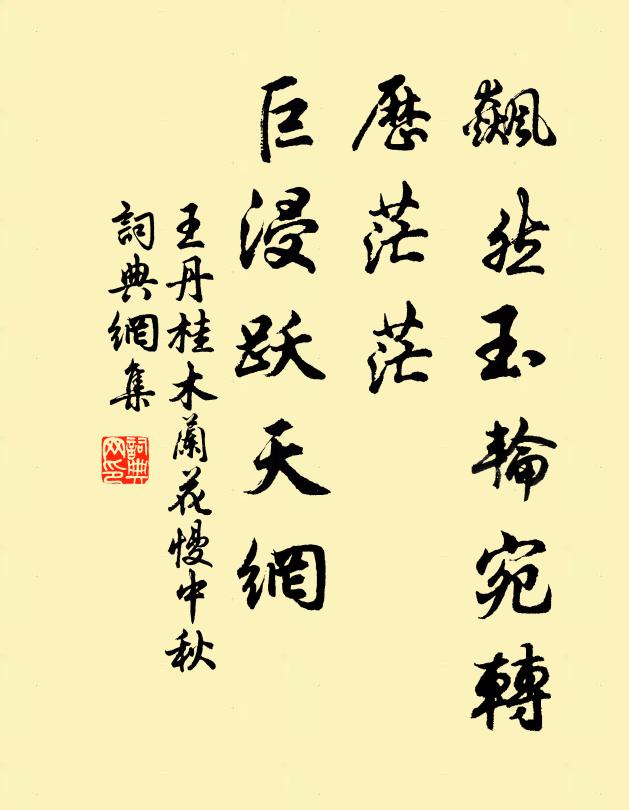 飆然玉輪宛轉
歷茫茫
巨浸跃天網
王丹桂木蘭花慢中秋
詞典網集
詞典网印